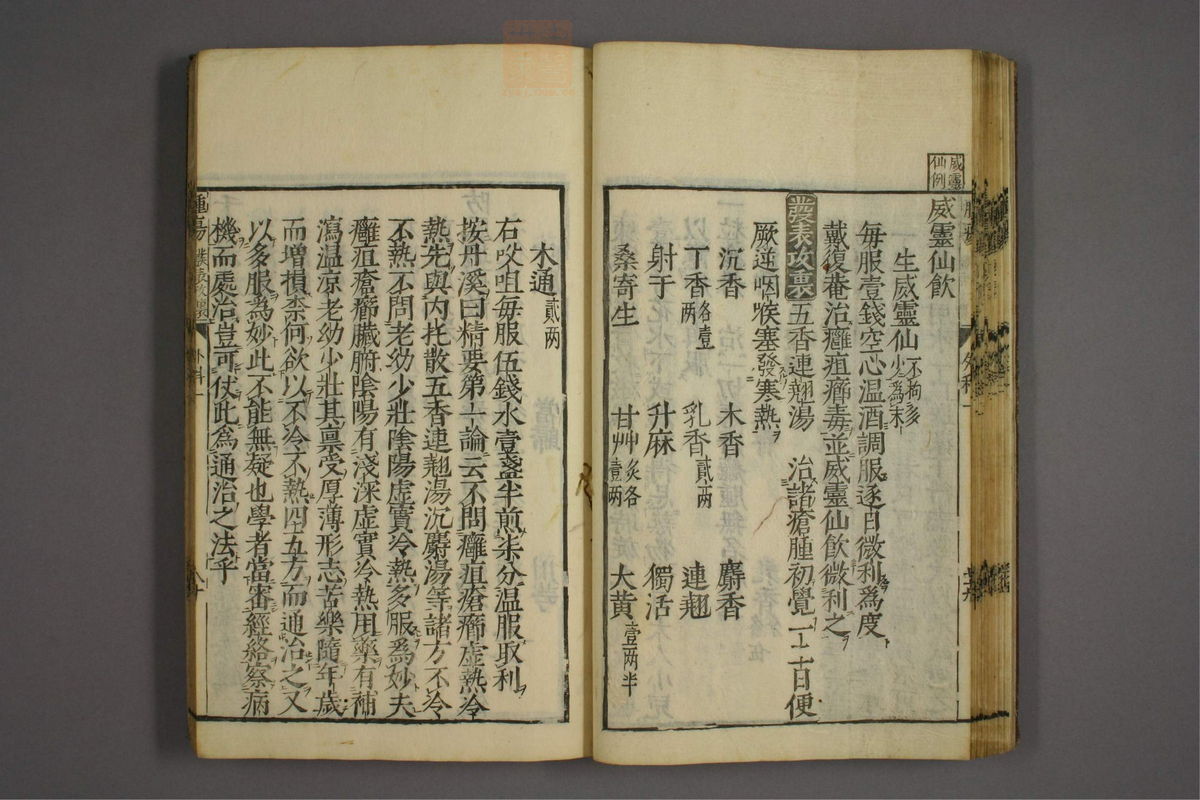 威靈仙例
威靈仙飲
生威靈仙不拘多少爲末
每服壹錢空心温酒調服逐日微利爲度
戴復菴治癰疽癤毒並威靈仙飲微利之
發表攻裏 五香連翹湯 治諸瘡腫初覺一二日便
厥逆咽喉塞發寒熱
沉香 木香 麝香
丁香各壹兩 乳香貳兩 連翹
射干 升麻 獨活
桑寄生 甘艸炙各壹兩 大黄壹兩半
木通貳兩
右㕮咀每服伍錢水壹盞半煎柒分温服取利
按丹溪曰精要第十論云不問癰疽瘡癤虚熱冷
熱先與内托散五香連翹湯沉麝湯等諸方不冷
不熱不問老幼少壯陰陽虚實冷熱多服爲妙夫
癰疽瘡癤臟腑陰陽有淺深虚實冷熱用藥有補
瀉温凉老幼少壯其禀受厚薄形志苦樂隨年歲
而增損柰何欲以不冷不熱四五方而通治之又
以多服爲妙此不能無疑也學者當審經絡察病
機而處治豈可仗此爲通治之法乎
腫瘍 發表攻裏 外科一